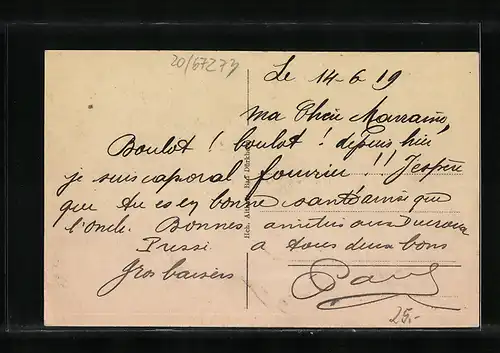 20/67273
Le 14-6 19
Ma Chère Marraine,
Boulot ! boulot ! depuis hier
je suis caporal fourrier !! J'espère
que tu es en bonne santé ainsi que
l'oncle. Bonnes amitiés aux
Pressé à tous deux bons
Gros baisers Paul
25.-